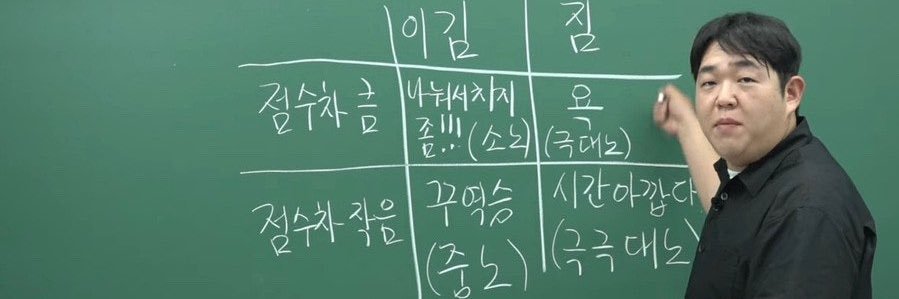 이김 짐
점수차 큼 나눠서 치지 욕
좀!!! (소노) (극대노)
점수차 작음 꾸역승 시간아깝다
(중노) (극극대노)